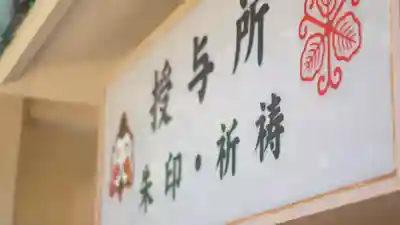 授与所
朱印・祈祷